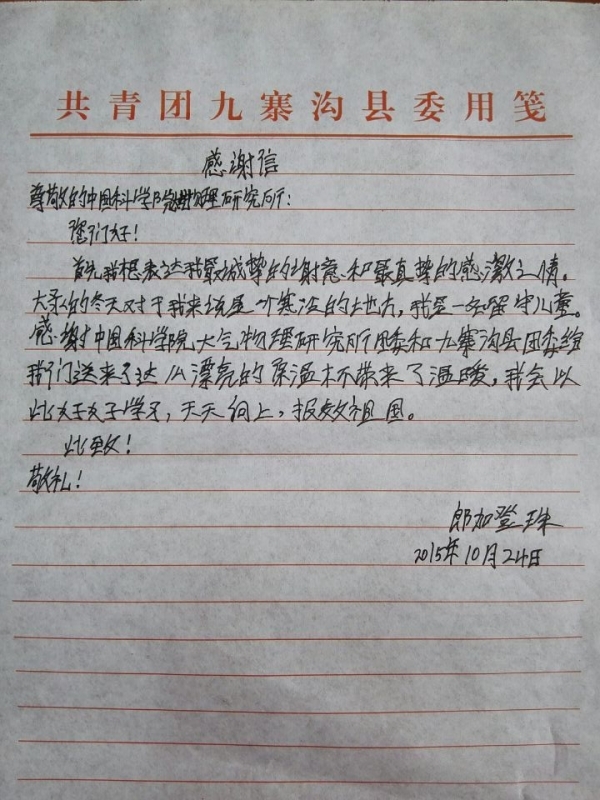 共青团九寨沟县委用笺
感谢信
尊敬的中国科学院物理研究所:
您们好!
首先我想表达我最诚挚的谢意和最真挚的感激之情。
大录的冬天对于我来说是一个寒冷的地方,我是一名留守儿童。
感谢中国科学院大气物理研究所团委和九寨沟县团委给
我们送来了这么漂亮的保温杯带来了温暖,我会以
此好好学习,天天向上,报效祖国。
此致!
敬礼!
郎加登珠
2015年10月24日